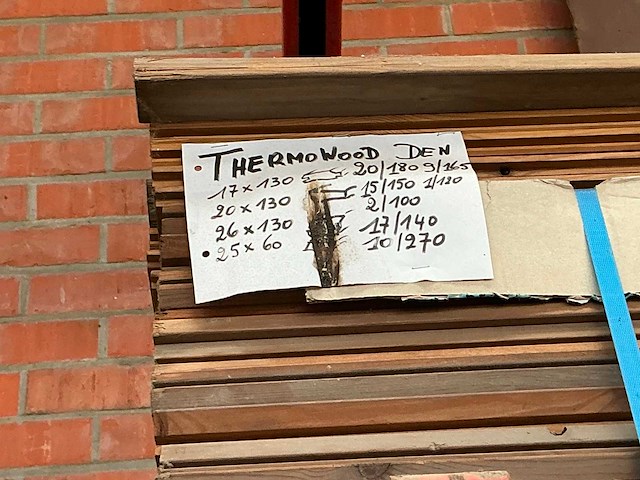 THERMOWOOD DEN
17 x 130 20/180 9/165
20 x 130 15/150 1/120
2/100
26 x 130 17/140
25 x 60 10/270